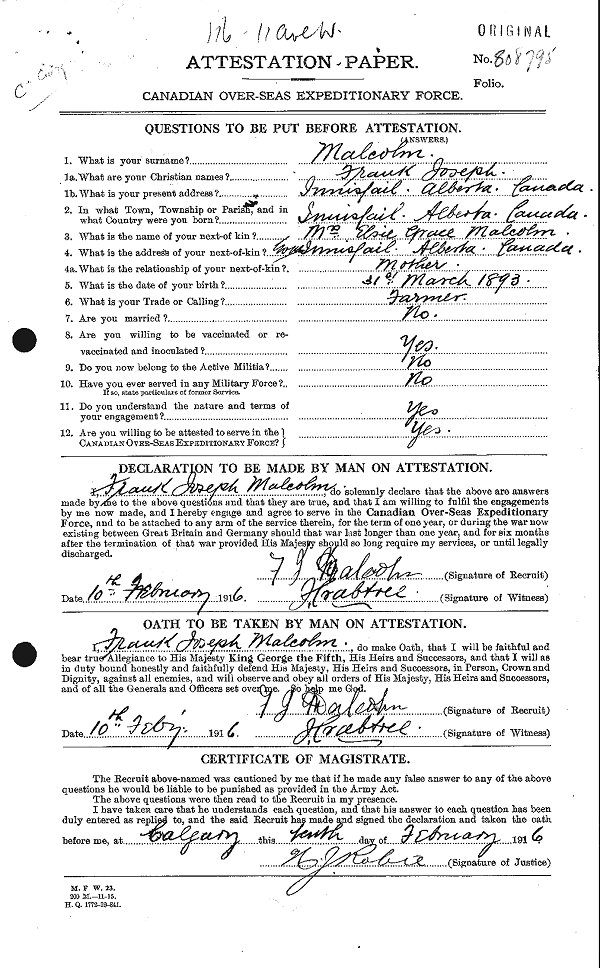 116 - 11 Ave W.
ORIGINAL
No. 808795
Folio.
ATTESTATION-PAPER.
CANADIAN OVER-SEAS EXPEDITIONARY FORCE.
QUESTIONS TO BE PUT BEFORE ATTESTATION.
(ANSWERS.)
1. What is your surname? Malcolm.
1a. What are your Christian names? Frank Joseph.
1b. What is your present address? Innisfail. Alberta. Canada.
2. In what Town, Township or Parish, and in
what Country were you born? Innisfail. Alberta. Canada.
3. What is the name of your next-of kin? Mrs Elsie Grace Malcolm.
4. What is the address of your next-of-kin? Innisfail. Alberta. Canada.
4a. What is the relationship of your next-of-kin? Mother.
5. What is the date of your birth? 31st March 1893.
6. What is your Trade or Calling? Farmer.
7. Are you married? No.
8. Are you willing to be vaccinated or re-
vaccinated and inoculated? Yes.
9. Do you now belong to the Active Militia? No
10. Have you ever served in any Military Force? No
If so, state particulars of former Service.
11. Do you understand the nature and terms of
your engagement? Yes
12. Are you willing to be attested to serve in the
CANADIAN OVER-SEAS EXPEDITIONARY FORCE? Yes.
DECLARATION TO BE MADE BY MAN ON ATTESTATION.
I, Frank Joseph Malcolm, do solemnly declare that the above are answers
made by me to the above questions and that they are true, and that I am willing to fulfil the engagements
by me now made, and I hereby engage and agree to serve in the Canadian Over-Seas Expeditionary
Force, and to be attached to any arm of the service therein, for the term of one year, or during the war now
existing between Great Britain and Germany should that war last longer than one year, and for six months
after the termination of that war provided His Majesty should so long require my services, or until legally
discharged.
F J Malcolm (Signature of Recruit)
Date 10th February 1916. J Crabtree (Signature of Witness)
OATH TO BE TAKEN BY MAN ON ATTESTATION.
I, Frank Joseph Malcolm., do make Oath, that I will be faithful and
bear true Allegiance to His Majesty King George the Fifth, His Heirs and Successors, and that I will as
in duty bound honestly and faithfully defend His Majesty, His Heirs and Successors, in Person, Crown and
Dignity, against all enemies, and will observe and obey all orders of His Majesty, His Heirs and Successors,
and of all the Generals and Officers set over me. So help me God.
F J Malcolm (Signature of Recruit)
Date 10th Feby. 1916 J Crabtree (Signature of Witness)
CERTIFICATE OF MAGISTRATE.
The Recruit above-named was cautioned by me that if he made any false answer to any of the above
questions he would be liable to be punished as provided in the Army Act.
The above questions were then read to the Recruit in my presence.
I have taken care that he understands each question, and that his answer to each question has been
duly entered as replied to, and the said Recruit has made and signed the declaration and taken the oath
before me, at Calgary this tenth day of February 1916
(Signature of Justice)
M. F W. 23.
200 M.-11-15.
H. Q. 1772-39-841.